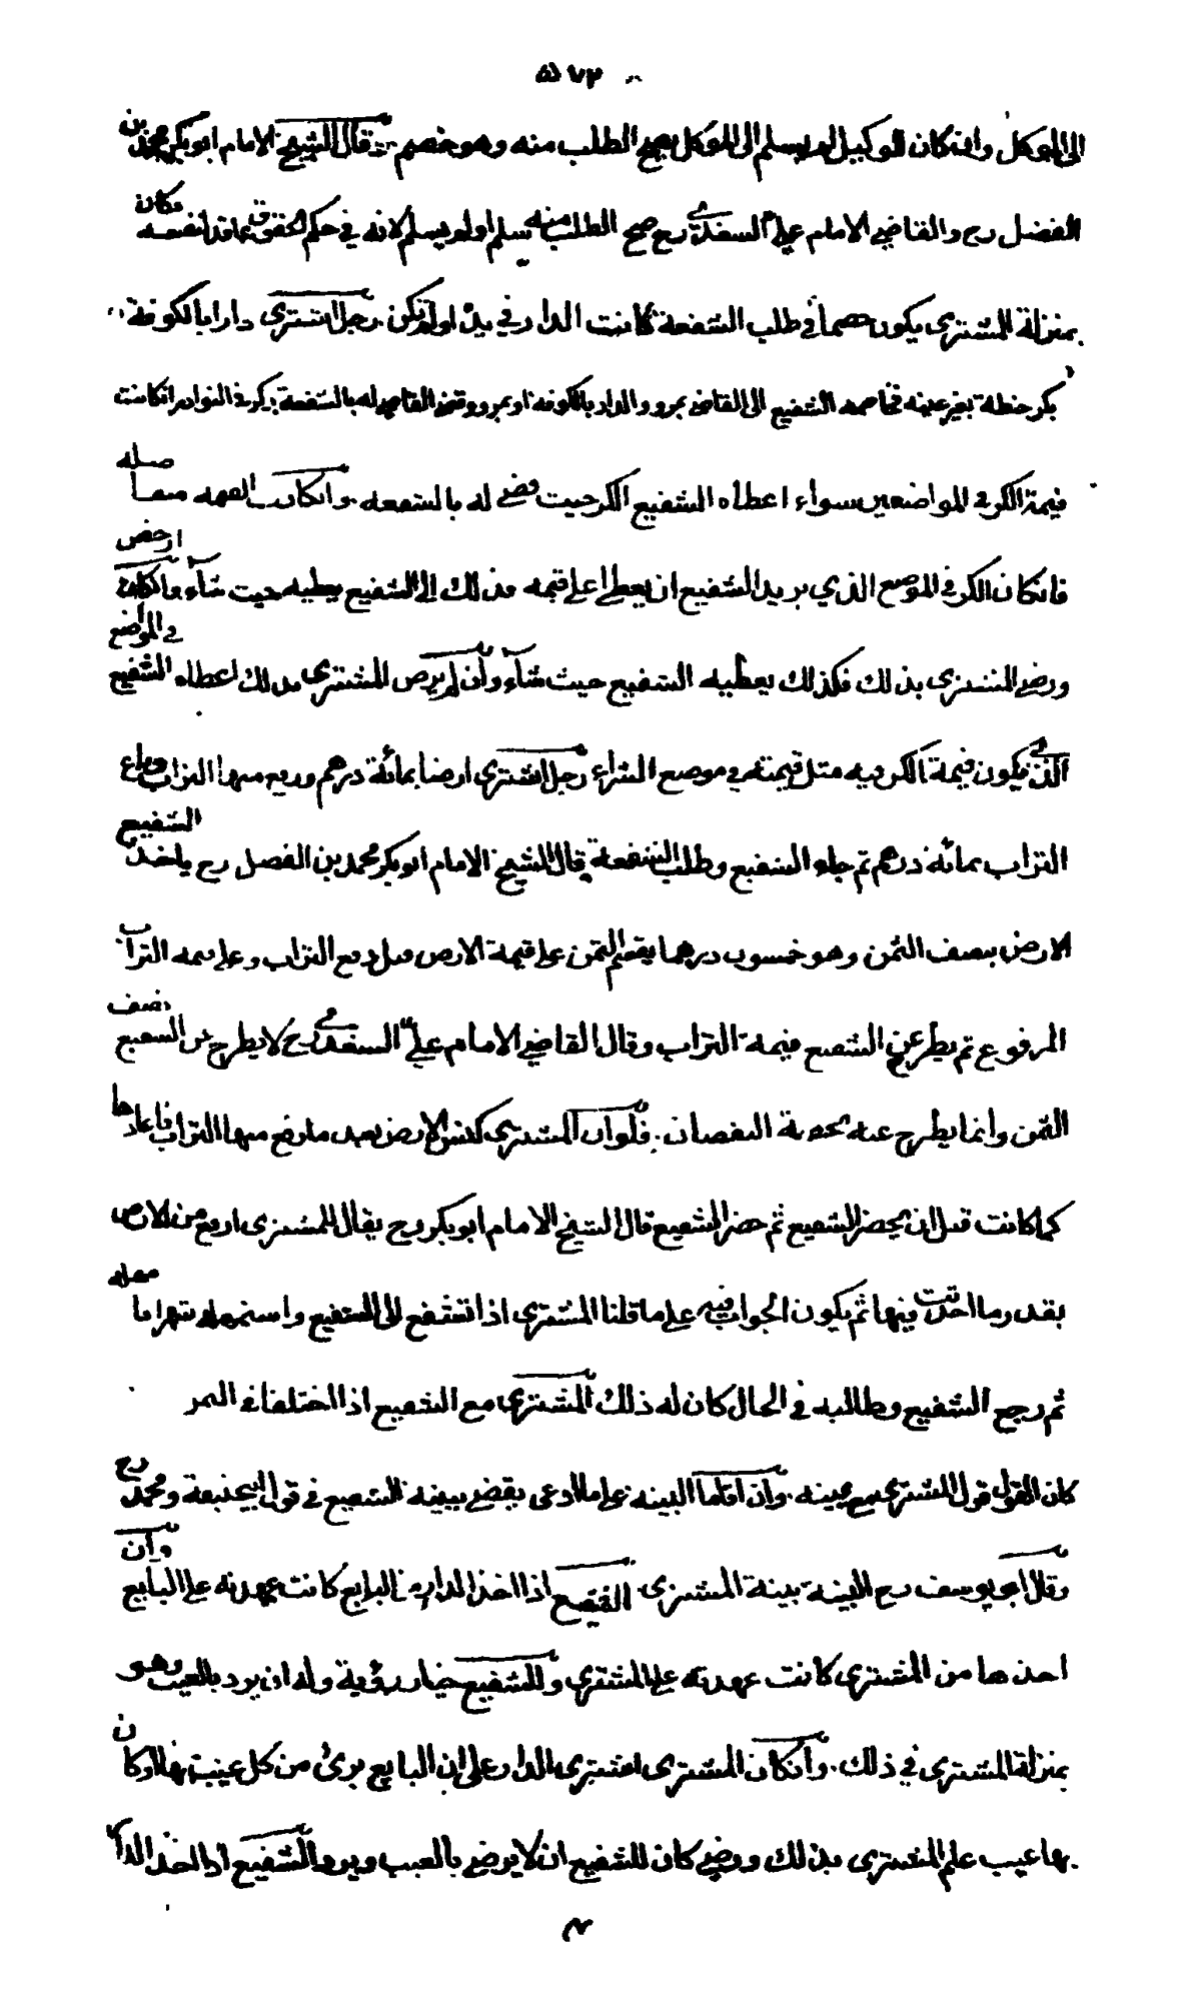 ٥٧٢
الى الموكل وان كان الوكيل لم يسلم الى الموكل يصح الطلب منه وهو خصم قال الشيخ الامام ابو بكر محمد بن
الفضل رح والقاضي الامام علي السغدي رح صح الطلب منه سلم او لم يسلم لانه في حكم الحقوق عاقد لنفسه فكان
بمنزلة المشتري يكون خصما في طلب الشفعة كانت الدار في يده او لم تكن رجل اشترى دارا بالكوفة
بكر حنطة بغير عينه فخاصمه الشفيع الى القاضي بمرو والدار بالكوفة او بمرو وقضى القاضي له بالشفعة ذكر في النوادر ان كانت
قيمة الكر في الموضعين سواء اعطاه الشفيع الكر حيث قضى له بالشفعة وان كانت القيمة متفاضلة
فان كان الكر في الموضع الذي يريد الشفيع ان يعطي اعلى قيمة فذلك الى الشفيع يعطيه حيث شاء وان كان ارخص
ورضي المشتري بذلك فكذلك يعطيه الشفيع حيث شاء وان لم يرض المشتري بذلك اعطاه الشفيع في المواضع
التي يكون قيمة الكر فيه مثل قيمته في موضع الشراء رجل اشترى ارضا بمائة درهم ورفع منها التراب وباع
التراب بمائة درهم ثم جاء الشفيع وطلب الشفعة قال الشيخ الامام ابو بكر محمد بن الفضل رح ياخذ الشفيع
الارض بنصف الثمن وهو خمسون درهما يقسم الثمن على قيمة الارض قبل رفع التراب وعلى قيمة التراب
المرفوع ثم يطرح عن الشفيع قيمة التراب وقال القاضي الامام علي السغدي رح لا يطرح عن الشفيع نصف
الثمن وانما يطرح عنه بحصة النقصان فلو ان المشتري كبس الارض بعد ما رفع منها التراب فاعادها
كما كانت قبل ان يحضر الشفيع ثم حضر الشفيع قال الشيخ الامام ابو بكر رح يقال للمشتري ارفع من الارض
بقدر ما احدثت فيها ثم يكون الجواب فيه على ما قلنا المشتري اذا الى الشفيع شهرا
ثم رجع الشفيع وطالبه في الحال كان له ذلك المشتري مع الشفيع اذا اختلفا في الثمن
كان القول قول المشتري مع يمينه وان اقاما البينة على ما ادعى يقضى ببينة الشفيع في قول ابي حنيفة ومحمد رح
وقال ابو يوسف رح البينة بينة المشتري الشفيع اذا اخذ الدار من البايع كانت عهدته على البايع وان
اخذها من المشتري كانت عهدته على المشتري وللشفيع خيار رؤية وله ان يرد بالعيب وهو
بمنزلة المشتري في ذلك وان كان المشتري اشترى الدار على ان البايع برئ من كل عيب بها او كان
بها عيب علم المشتري بذلك ورضي كان للشفيع ان لا يرضى بالعيب ويرد الشفيع اذا اخذ الدار